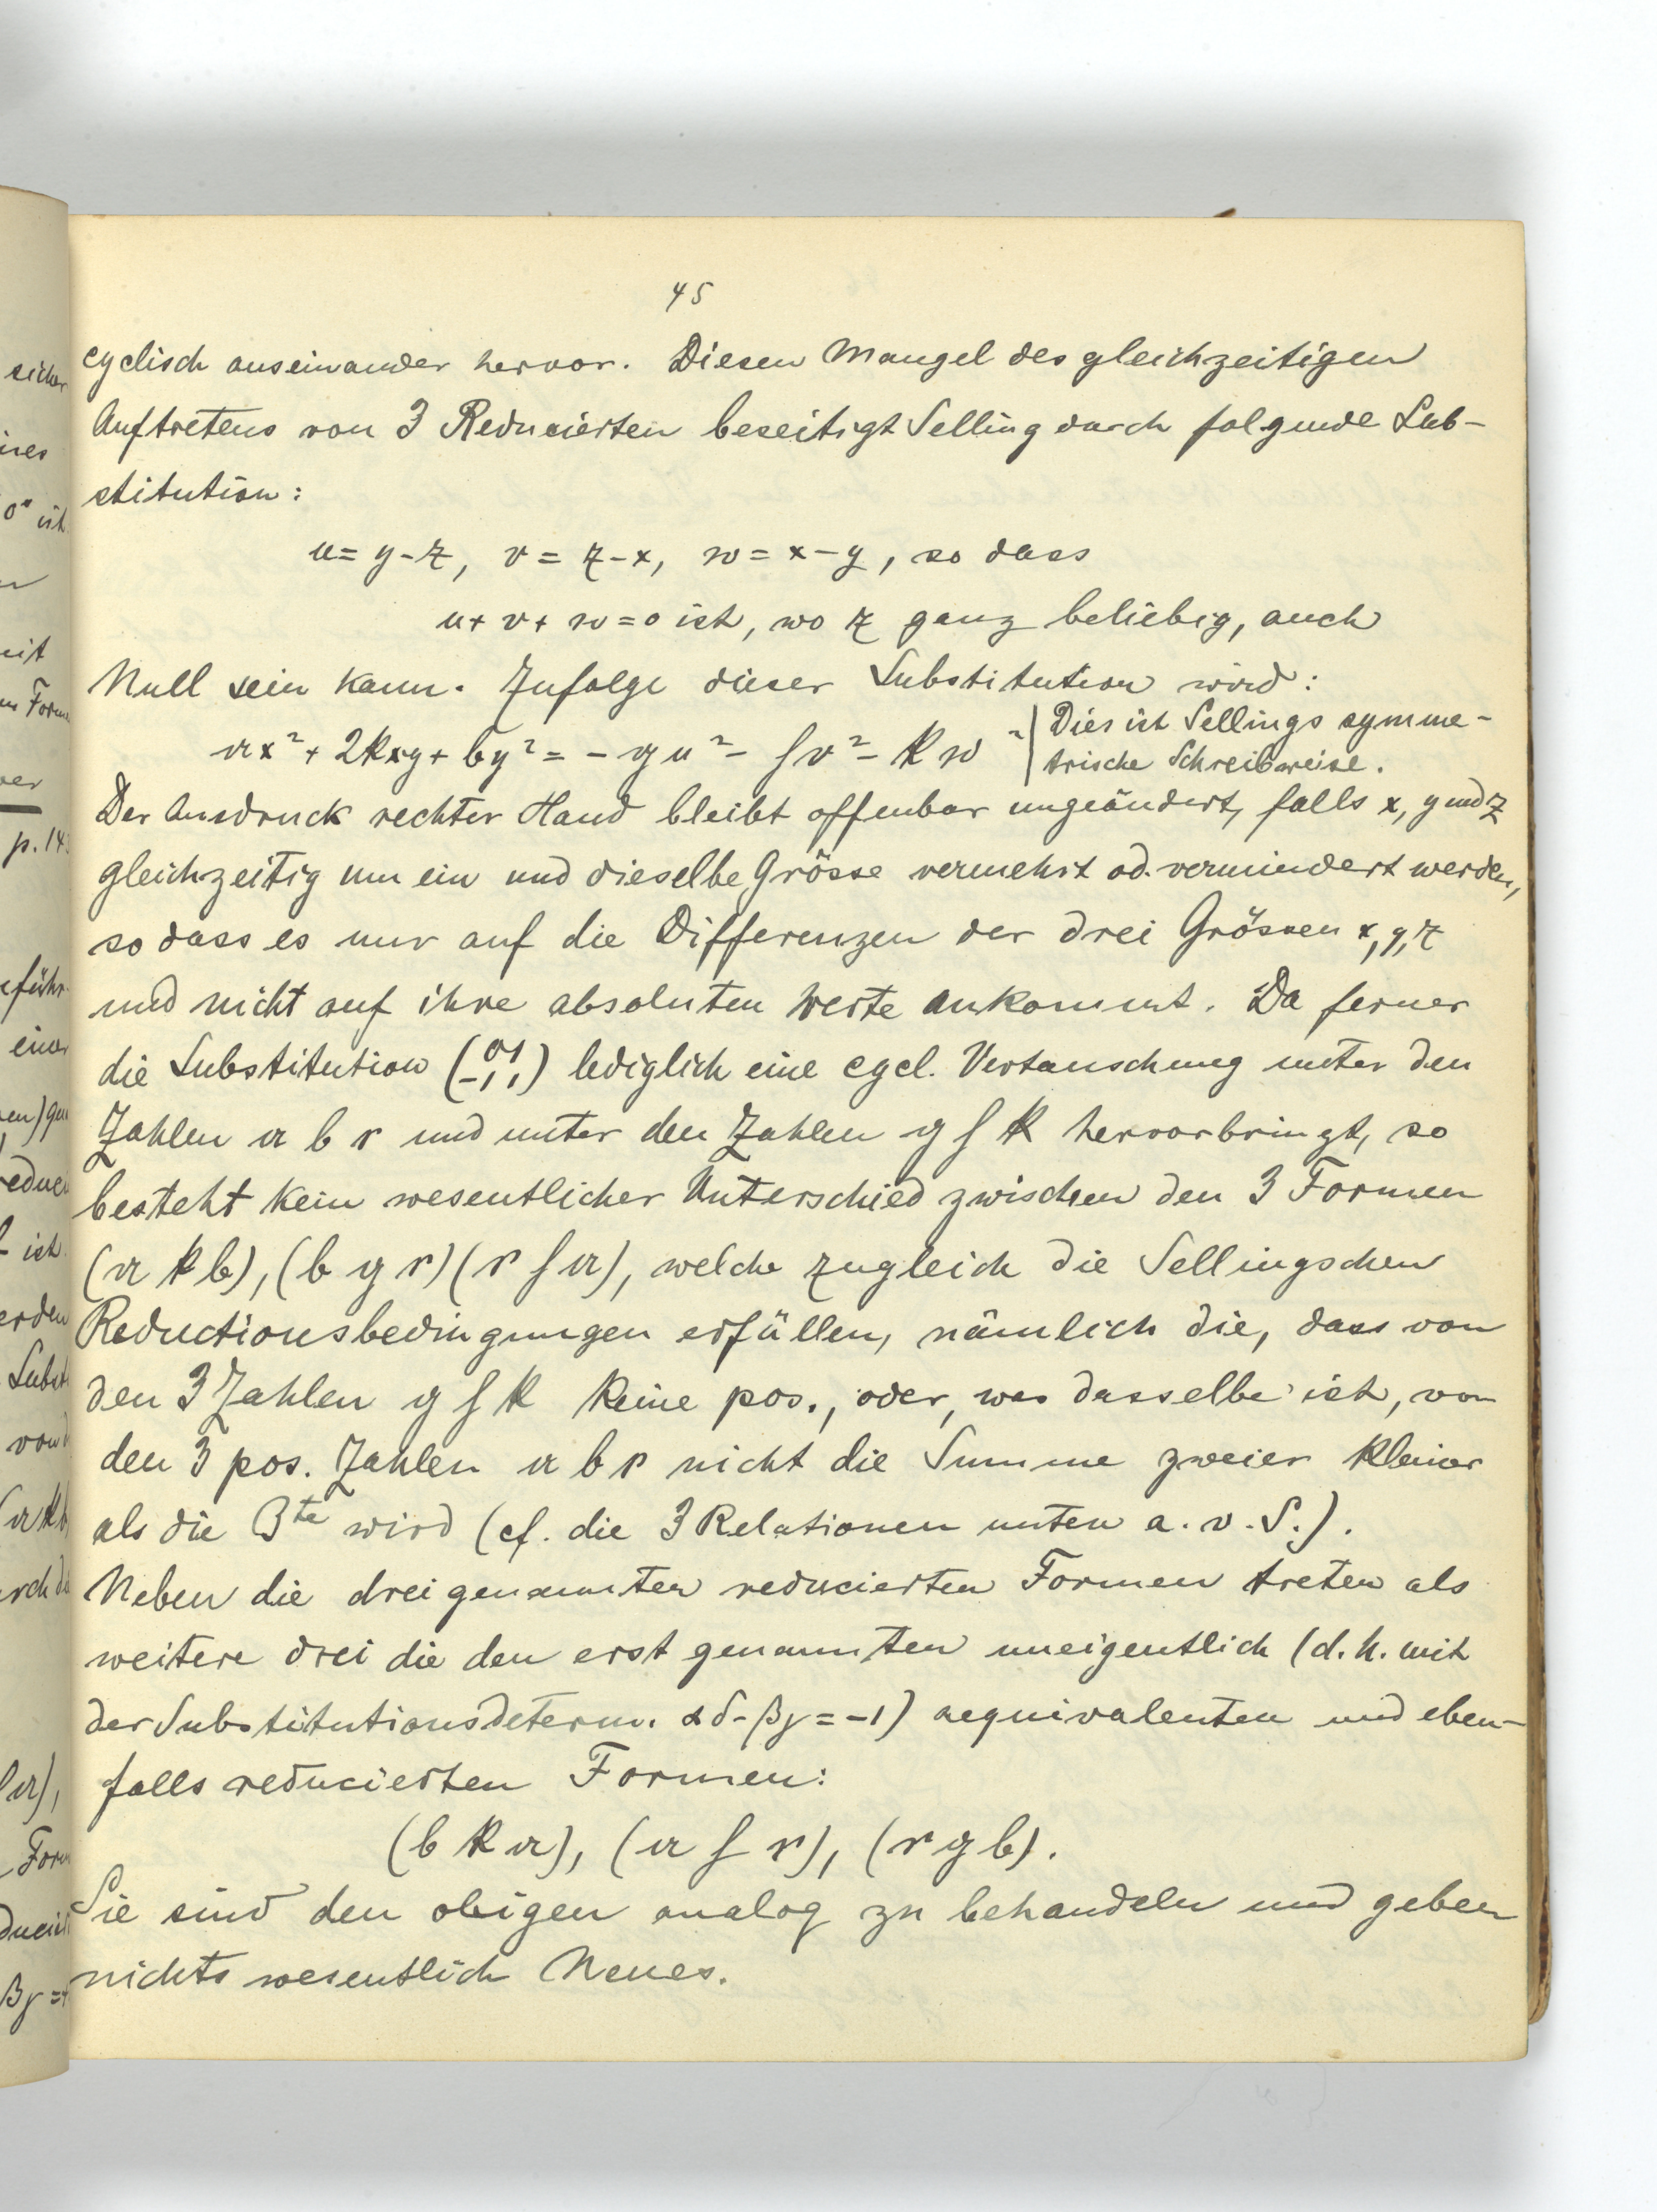 45
cyclisch auseinander hervor. Diesen Mangel des gleichzeitigen
Auftretens von 3 Reducierten beseitigt Selling durch folgende Sub-
stitution:
u = y - z, v = z - x, w = x - y, so dass
u + v + w = 0 ist, wo z ganz beliebig, auch
Null sein kann. Zufolge dieser Substitution wird:
ax² + 2kxy + by² = - gu² - hv² - kw² | Dies ist Sellings symme-
trische Schreibweise.
Der Ausdruck rechter Hand bleibt offenbar ungeändert, falls x, y und z
gleichzeitig um ein und dieselbe Grösse vermehrt od. vermindert werden,
so dass es nur auf die Differenzen der drei Grössen x, y, z
und nicht auf ihre absoluten Werte ankommt. Da ferner
die Substitution (0 1 / -1, 1) lediglich eine cycl. Vertauschung unter den
Zahlen a b c und unter den Zahlen g h k hervorbringt, so
besteht kein wesentlicher Unterschied zwischen den 3 Formen
(a k b), (b g c) (c h a), welche zugleich die Sellingschen
Reductionsbedingungen erfüllen, nämlich die, dass von
den 3 Zahlen g h k keine pos., oder, was dasselbe ist, von
den 3 pos. Zahlen a b c nicht die Summe zweier kleiner
als die 3te wird (cf. die 3 Relationen unten a. v. S.).
Neben die drei genannten reducierten Formen treten als
weitere drei die den erst genannten uneigentlich (d. h. mit
der Substitutionsdeterm. αδ - βγ = -1) aequivalenten und eben-
falls reducierten Formen:
(b k a), (a h c), (c g b).
Sie sind den obigen analog zu behandeln und geben
nichts wesentlich Neues.